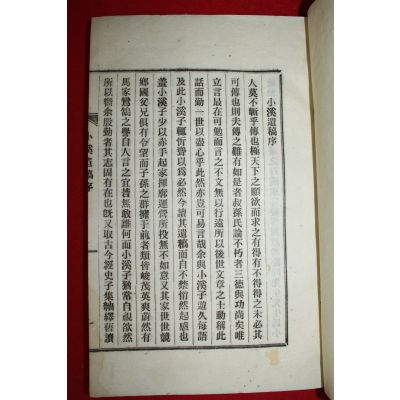 小溪遺稿序
人莫不斬乎傳也極天下之願欲而求之有得有不得得之未必其
可傳也則夫傳之難有如是者叔孫氏論不朽者三德與功尚矣唯
立言最在可勉而言之不文無以行遠所以後世文章之士動稱此
話而勤一世以盡心乎此然亦豈可易言哉余與小溪子遊久每語
及此小溪子輒忻聳以爲必然今讀其遺稿而自不禁愴然起感也
蓋小溪子少以赤手起家揮廓運營所投無不如意又其家世世競
鄉國父兄俱有令望而子孫之群擁于前者類皆峻茂英爽蔚然有
馬家鸞鵠之譽自人言之宜若無敢誰何而小溪子猶常自視欿然
所以嚮余殷勤者其志固有在也旣又取古今經史子集紬繹舊讀
小溪遺稿序